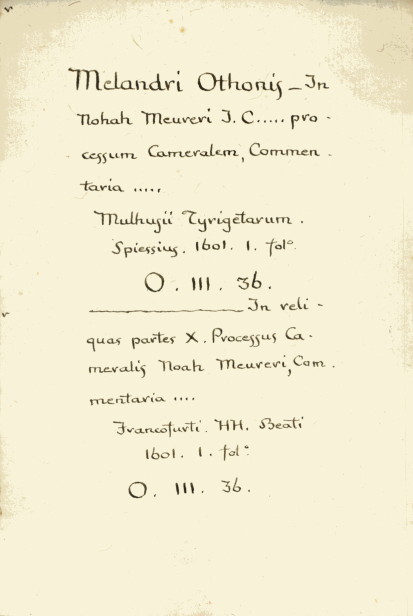 Melandri Othonis - In
Nohah Meureri J. C..... pro-
cessum Cameralem, Commen-
taria .....
Mulhusii Tyrigetarum.
Spiessius. 1601. 1. folº.
O. III. 36.
In reli-
quas partes X. Processus Ca-
meralis Noah Meureri, Com-
mentaria ....
Francofurti. HH. Beati
1601. 1. folº.
O. III. 36.